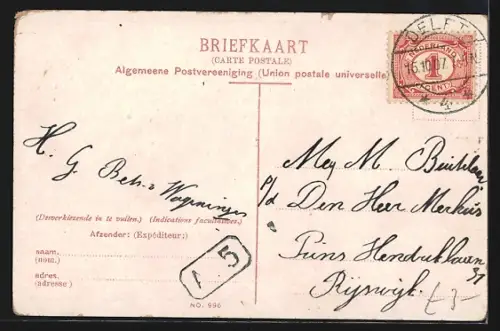 BRIEFKAART
(CARTE POSTALE)
Algemeene Postvereeniging (Union postale universelle)
DELFT
15.10.07
NEDERLAND
1
CENT
H. G. Beh.s Wageningen
(Doorverkiezende in te vullen.) (Indications facultatives.)
Afzender: (Expéditeur:)
naam.
(nom.)
adres.
(adresse)
NO. 996
15
Mej M.
p/a Den Heer Merkus
Prins Hendriklaan
Rijswijk.